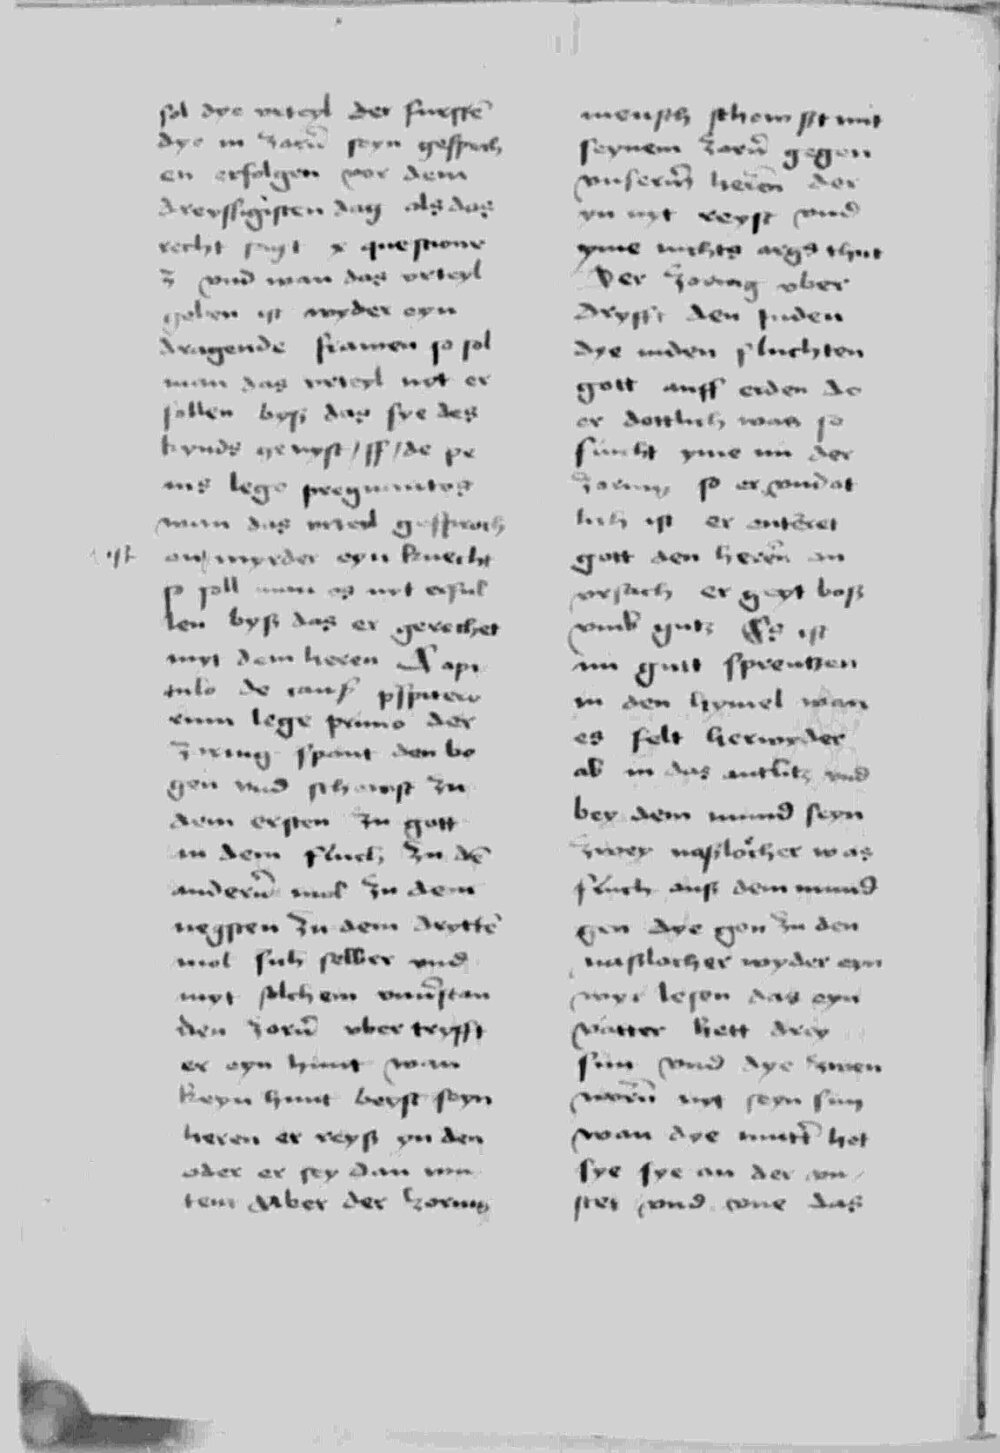 sol dye vrteyl der furste͂
dye in zorn̄ seyn gesproch
en erfolgen vor dem
dreyssigisten dag als das
recht sagt x questione
3 vnd wan das vrteyl
geben ist wyder eyn
dragende frawen so sol
man das vrteyl nyt er
follen byß das sye des
kynds genyst / ff / de pe
nis lege pregnantes
wan das vrteyl gesproch
ist
wyder eyn knecht
so soll man es nyt erful
len byß das er gerechet
myt dem heren Capi
tulo de
rum lege primo der
zornig spant den bo
gen vnd schowst zu
dem ersten zu gott
in dem fluch zu de͂
andern̄ mol zu dem
negsten zu dem drytte͂
mol sich selber vnd
myt solchem
den zorn̄ vber tryfft
er eyn hunt wan
keyn hunt beyst seyn
heren er reyß yn den
oder er sey dan wu
tent Aber der zornig
mensch schowßt mit
seynem zorn̄ gegen
vnserm̄ heren̄ der
yn nyt reyst vnd
yme nichts args thut
Der zornig vber
dryfft den juden
dye iuden fluchten
gott auff erden do
er dottlich was so
flucht yme nu der
zornig so er vndot
lich ist er enteret
gott den heren̄ an
vrsach er geyt boß
vmb gutz Es ist
nit gutt spreutzen
in den hymel wan
es felt herwyder
ab in das antlitz vnd
bey dem mund seyn
zwey naßlöcher was
fluch auß dem mund
gen dye gon zu den
naßlocher wyder eyn
wyr lesen das eyn
vatter hett drey
sun vnd dye zwen
worn̄ nyt seyn sun
wan dye mutt͂ het
sye sye an der
vnd das